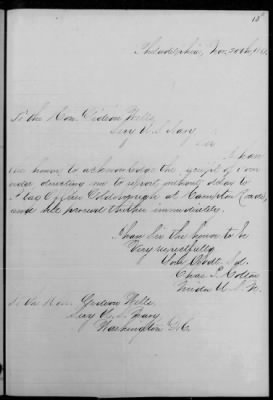 Philadelphia, Nov. 20th, 186
To the Hon. Gideon Wells,
Secy U.S. Navy
Sir
I have
the honor to acknowledge the receipt of your
order directing me to report without delay to
Flag Officer Goldsborough at Hampton Roads,
and will proceed thither immediately.
I have Sir the honor to be
Very respectfully
Your Obedt. Sd.
Chas. 
U.S.N.
To the Hon. Gideon Wells
Secy U.S. Navy
Washington D.C.